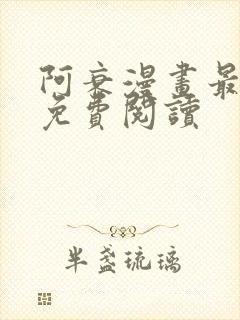 阿衰漫畫最
免費閱讀
半盞琉璃